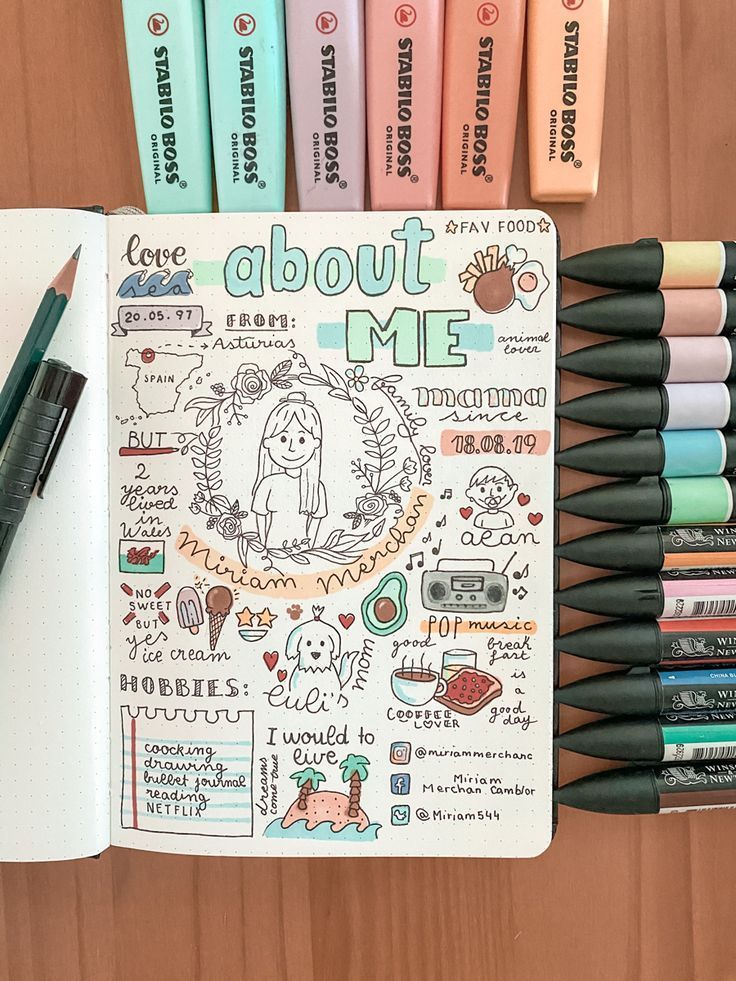 STABILO BOSS
ORIGINAL
STABILO BOSS
ORIGINAL
STABILO BOSS
ORIGINAL
STABILO BOSS
ORIGINAL
STABILO BOSS
ORIGINAL
STABILO BOSS
ORIGINAL
love
sea
about
ME
FAV FOOD
20.05.97
FROM:
Asturias
SPAIN
animal
lover
mama
since
18.08.19
family lover
BUT
2
years
lived
in
Wales
Miriam Merchan
aean
NO
SWEET
BUT
yes
ice cream
luli's
mom
POP music
good
break
fast
is
a
good
day
COOFFEE
LOVER
HOBBIES:
coocking
drawing
bullet journal
reading
NETFLIX
I would to
live
dreams
come true
@miriammerchanc
Miriam
Merchan Cambor
@Miriam544
WINS
NEW
WINS
NEW
WIN
NEW
CHINA BLU
NEW
WINS
NEW
WINSO
NEWT